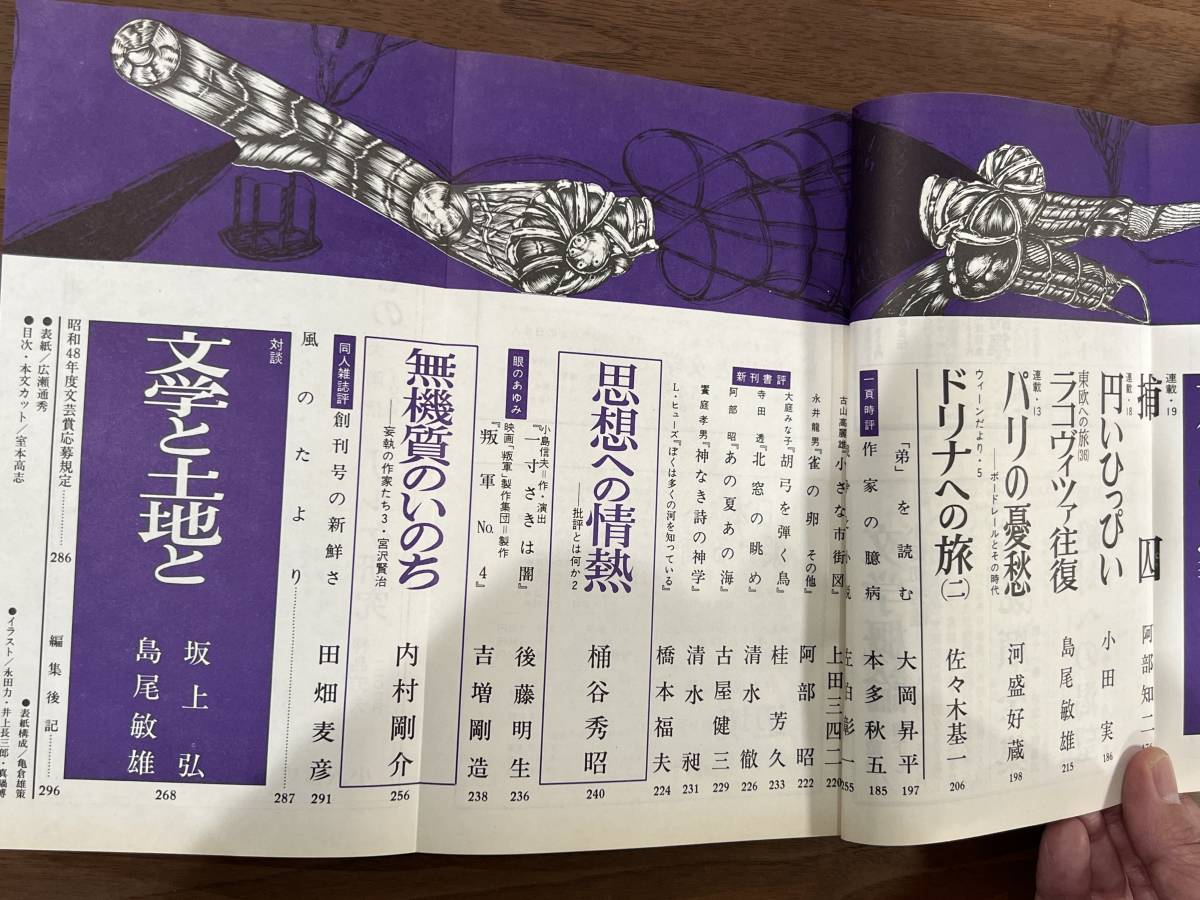 連載・19
捕囚
阿部知二
連載・18
円いひっぴい
小田実
186
東欧への旅(36)
ラコヴィツァ往復
島尾敏雄
215
連載・13
パリの憂愁
――ボードレールとその時代
河盛好蔵
198
ウィーンだより・5
ドリナへの旅(二)
佐々木基一
206
「弟」を読む
大岡昇平
197
一頁時評
作家の臆病
本多秋五
185
255
新刊書評
古山高麗雄『小さな市街図』
上田三四二
220
永井龍男『雀の卵 その他』
阿部昭
222
大庭みな子『胡弓を弾く鳥』
桂芳久
233
寺田透『北窓の眺め』
清水徹
226
阿部昭『あの夏あの海』
古屋健三
229
饗庭孝男『神なき詩の神学』
清水昶
231
L・ヒューズ『ぼくは多くの河を知っている』
橋本福夫
224
思想への情熱
――批評とは何か2
桶谷秀昭
240
眼のあゆみ
小島信夫=作・演出
『一寸さきは闇』
後藤明生
236
映画「叛軍」製作集団=製作
『叛軍No.4』
吉増剛造
238
無機質のいのち
――妄執の作家たち3・宮沢賢治
内村剛介
256
同人雑誌評
創刊号の新鮮さ
田畑麦彦
291
風のたより
287
対談
文学と土地と
坂上弘
島尾敏雄
268
昭和48年度文芸賞応募規定
286
編集後記
296
●表紙/広瀬通秀
●表紙構成/亀倉雄策
●目次・本文カット/室本高志
●イラスト/永田力・井上長三郎・真鍋博